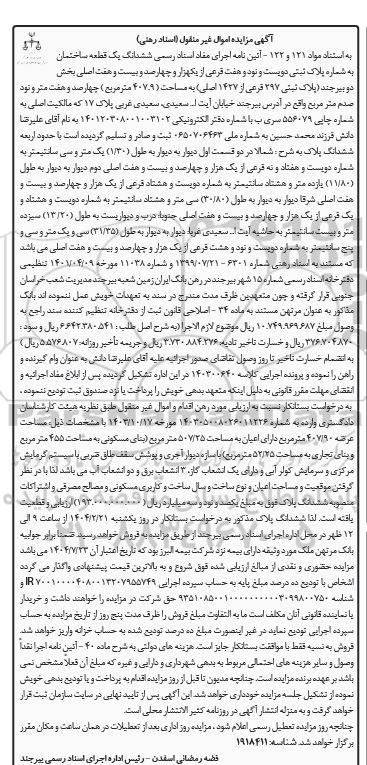 آگهی مزایده اموال غیر منقول (اسناد رهنی)
به استناد مواد ۱۲۱ و ۱۲۲ - آئین نامه اجرای مفاد اسناد رسمی ششدانگ یک قطعه ساختمان
به شماره پلاک ثبتی دویست و نود و هفت فرعی از یکهزار و چهارصد و بیست و هفت اصلی بخش
دو بیرجند (پلاک ثبتی ۲۹۷ فرعی از ۱۴۲۷ اصلی) به مساحت (۴۰۷.۹ مترمربع ) چهارصد و هفت متر و نود
صدم متر مربع واقع در آدرس بیرجند خیابان آیت ا... سعیدی، سعیدی غربی پلاک ۱۷ که مالکیت اصلی به
شماره چاپی ۵۵۶۰۷۹ سری ب با شماره دفتر الکترونیکی ۱۴۰۱۲۰۳۰۸۰۰۱۰۰۳۱۰۲ به نام آقای علیرضا
دانش فرزند محمد حسین به شماره ملی ۰۶۵۰۷۰۶۴۶۳ ثبت و صادر و تسلیم گردیده است با حدود اربعه
ششدانگ پلاک به شرح : شمالا در دو قسمت اول دیوار به دیوار به طول (۱/۳۰) یک متر و سی سانتیمتر به
شماره دویست و هفتاد و نه فرعی از یک هزار و چهارصد و بیست و هفت اصلی دوم دیوار به دیوار به طول
(۱۱/۸۰) یازده متر و هشتاد سانتیمتر به شماره دویست و هشتاد فرعی از یک هزار و چهارصد و بیست و
هفت اصلی شرقا دیوار به دیوار به طول (۳۰/۸۰) سی متر و هشتاد سانتیمتر به شماره دویست و هشتاد و
یک فرعی از یک هزار و چهارصد و بیست و هفت اصلی جنوبا: درب و دیواریست به طول (۱۳/۲۰) سیزده
متر و بیست سانتیمتر به حاشیه آیت ا... سعیدی غربا دیوار به دیوار به طول (۳۱/۳۵) سی و یک متر و سی و
پنج سانتیمتر به شماره دویست و نود و هشت فرعی از یک هزار و چهارصد و بیست و هفت اصلی می باشد
که مستند به اسناد رهنی شماره ۶۳۰۱ - ۱۳۹۹/۰۷/۲۱ و شماره ۱۱۰۳۸ مورخه ۱۴۰۱/۰۴/۰۹ تنظیمی
دفترخانه اسناد رسمی شماره ۱۵ شهر بیرجند در رهن بانک ایران زمین شعبه بیرجند مدیریت شعب خراسان
جنوبی قرار گرفته و چون متعهدین ظرف مدت مندرج در سند به تعهدات خویش عمل ننموده اند بانک
مذکور به عنوان مرتهن مستند به ماده ۳۴ - اصلاحی قانون ثبت از دفترخانه تنظیم کننده سند راجع به
وصول مبلغ ۱۰.۷۴۹.۹۶۹.۶۸۷ ریال موضوع لازم الاجرا (به شرح اصل طلب : ۶.۶۴۲.۳۸۰.۵۴۱ ریال و سود :
۳۷۶.۷۰۴.۸۷۰ ریال و خسارت تاخیر تادیه: ۳.۷۳۰.۸۸۴.۲۷۶ ریال و جریمه تأخیر روزانه: ۵.۵۷۶.۸۰۷ ریال )
به انضمام خسارت تاخیر تا روز وصول تقاضای صدور اجرائیه علیه آقای علیرضا دانش به عنوان وام گیرنده و
راهن را نموده و پرونده اجرایی کلاسه ۱۴۰۳۰۰۶۴۰ در این اداره تشکیل گردیده پس از ابلاغ مفاد اجرائیه و
انقضای مهلت مقرر قانونی به دلیل اینکه متعهد بدهی خویش را پرداخت یا نزد صندوق ثبت تودیع ننموده ،
به درخواست بستانکار نسبت به ارزیابی مورد رهن اقدام و اموال غیر منقول طبق نظریه هیئت کارشناسان
دادگستری وارده به شماره ۱۴۰۳۰۵۰۰۸۰۲۶۰۱۱۲۲۶ مورخه ۱۴۰۳/۱۰/۱۷ با مشخصات ذیل: مساحت
عرصه ۴۰۷/۹۰ مترمربع دارای اعیان به مساحت ۵۰۷/۲۵ متر مربع (بنای مسکونی به مساحت ۴۵۵ متر مربع
و بنای تجاری به مساحت ۵۲/۲۵ مترمربع) با سازه دیوار آجری و پوشش سقف طاق ضربی با سیستم گرمایش
مرکزی و سرمایش کولر آبی و دارای یک انشعاب گاز، ۳ انشعاب برق و دو انشعاب آب می باشد لذا با در نظر
گرفتن موقعیت و مساحت اعیان و نوع ساخت و سال ساخت و کاربری مسکونی و مصالح مصرفی و اشتراکات
منصوبه ششدانگ پلاک فوق به مبلغ یکصد و نود و سه میلیارد ریال (۱۹۳.۰۰۰.۰۰۰.۰۰۰) ارزیابی و قطعیت
یافته است. لذا ششدانگ پلاک مذکور به درخواست بستانکار در روز یکشنبه ۱۴۰۴/۲/۲۱ از ساعت ۹ الی
۱۲ ظهر در محل اداره اجرای اسناد رسمی بیرجند از طریق مزایده به فروش خواهد رسید. ضمنا برابر جوابیه
بانک مرتهن ملک مورد وثیقه دارای بیمه نزد شرکت بیمه البرز بود که تاریخ اعتبار آن ۱۴۰۴/۷/۲۳ می باشد
مزایده حضوری و نقدی از مبالغ ارزیابی شده فوق شروع و به بالاترین قیمت پیشنهادی واگذار می گردد
اشخاص با تودیع ده درصد مبلغ پایه به حساب سپرده اجرایی IR۷۰۰۱۰۰۰۰۴۰۸۰۰۱۳۲۰۷۹۵۵۷۴۹ و
شناسه ۹۳۵۱۰۸۵۰۰۱۰۰۰۰۰۰۰۰۰۳۰۹۹۸۰۰۷۵۰ حق شرکت در مزایده را خواهند داشت و خریدار
یا نماینده قانونی آنان مکلف است ما به التفاوت مبلغ فروش را ظرف مدت پنج روز از تاریخ مزایده به حساب
سپرده اجرایی تودیع نماید در غیر اینصورت مبلغ ده درصد تودیع شده به حساب خزانه واریز خواهد شد.
فروش به نسیه فقط با موافقت بستانکار جایز است. هزینه های دولتی به شرح ماده ۴۰ - آئین نامه اجرا نقداً
وصول و سایر هزینه های احتمالی مربوط به بدهی شهرداری و دارایی و غیره که مبلغ آن فعلاً مشخص نمی
باشد بر عهده برنده مزایده است. چنانچه مدیون تا قبل از روز مزایده اقدام به پرداخت و یا تودیع بدهی خویش
نموده از تشکیل جلسه مزایده خودداری خواهد شد. این آگهی پس از تایید نهایی در سایت سازمان ثبت قرار
خواهد گرفت و به منزله انتشار آگهی در روزنامه کثیر الانتشار محلی است.
چنانچه روز مزایده تعطیل رسمی اعلام شود ، مزایده روز اداری بعد از تعطیلات در همان ساعت و مکان مقرر
برگزار خواهد شد. شناسه: ۱۹۱۸۴۱۱
فضه رمضانی اسفدن - رئیس اداره اجرای اسناد رسمی بیرجند